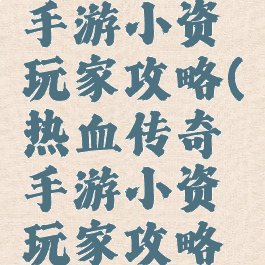 手游小资
玩家攻略(
热血传奇
手游小资
玩家攻略